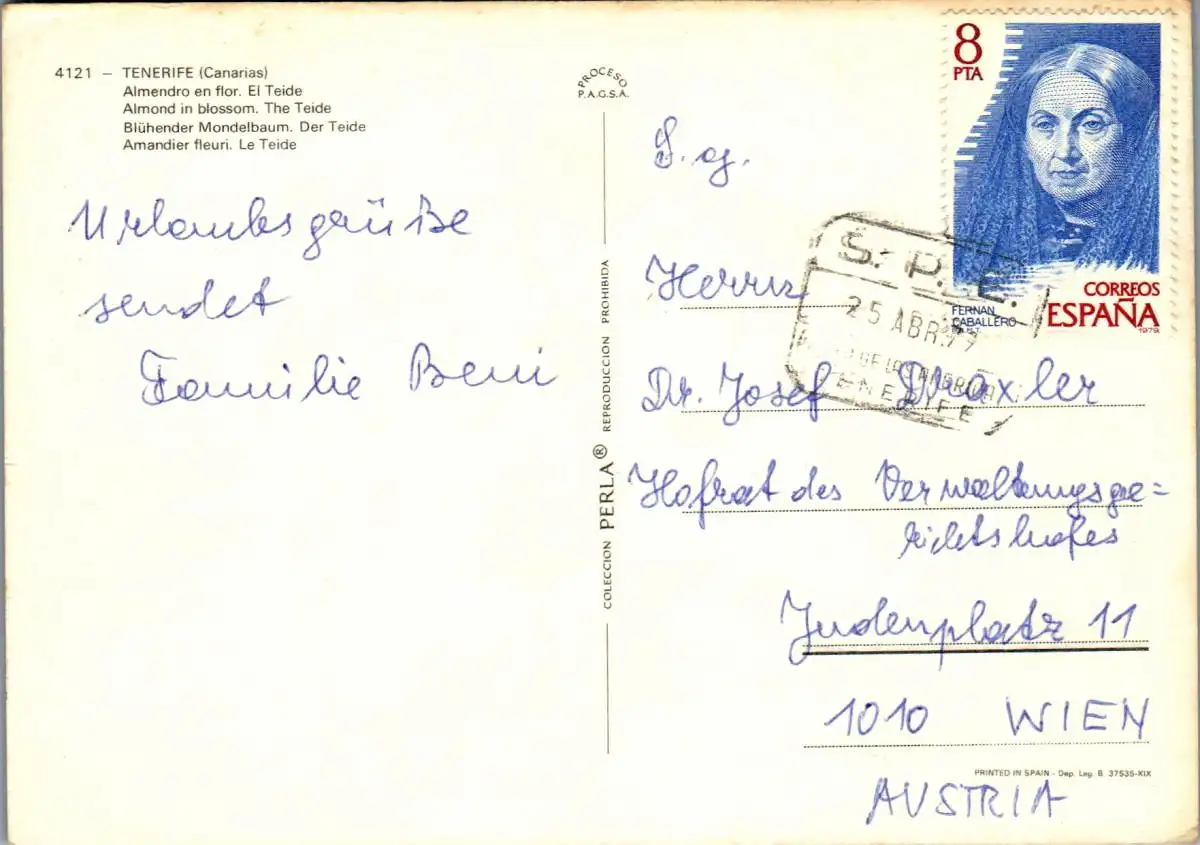 4121 — TENERIFE (Canarias)
Almendro en flor. El Teide
Almond in blossom. The Teide
Blühender Mondelbaum. Der Teide
Amandier fleuri. Le Teide
Urlaubsgrüße
sendet
Familie Beni
PROCESO
P.A.G.S.A.
COLECCION PERLA® REPRODUCCION PROHIBIDA
8
PTA
FERNAN
CABALLERO
F.N.M.T.
CORREOS
ESPAÑA
1979
S. P. E.
25 ABR.79
TENERIFE
S. g.
Herrn
Dr. Josef Draxler
Hofrat des Verwaltungsge=
richtshofes
Judenplatz 11
1010 WIEN
AUSTRIA
PRINTED IN SPAIN - Dep. Leg. B. 37535-XIX